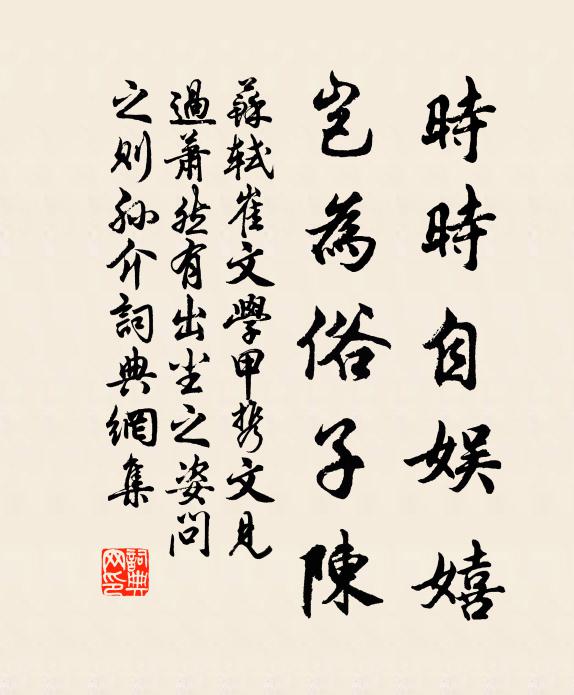 時時自娛嬉
豈為俗子陳
蘇軾崔文學甲携文見
過蕭然有出尘之姿問
之則孙介詞典網集
詞典
网印